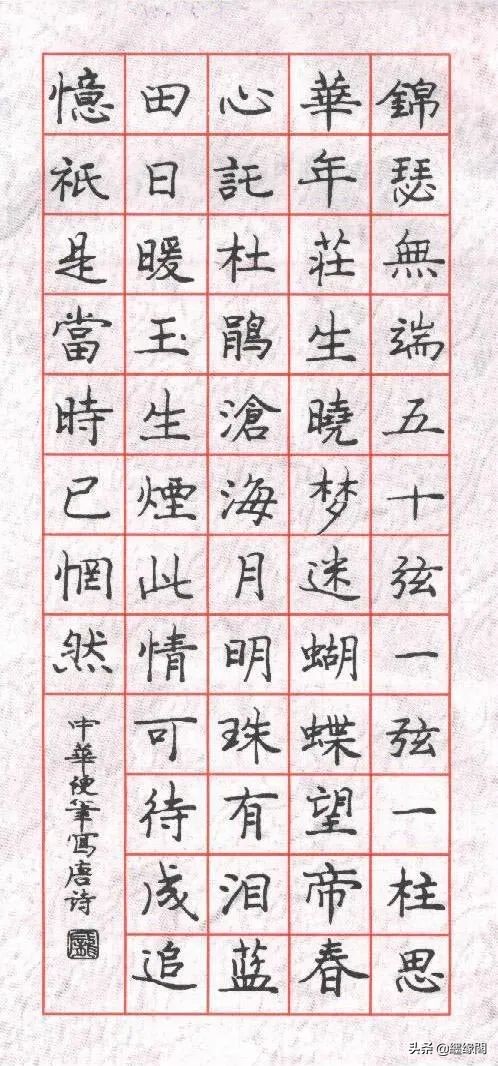 錦瑟無端五十弦一弦一柱思
華年莊生曉梦迷蝴蝶望帝春
心託杜鵑滄海月明珠有泪蓝
田日暖玉生煙此情可待成追
憶祇是當時已惘然
中華硬筆寫唐诗
头条 @繼缘閣